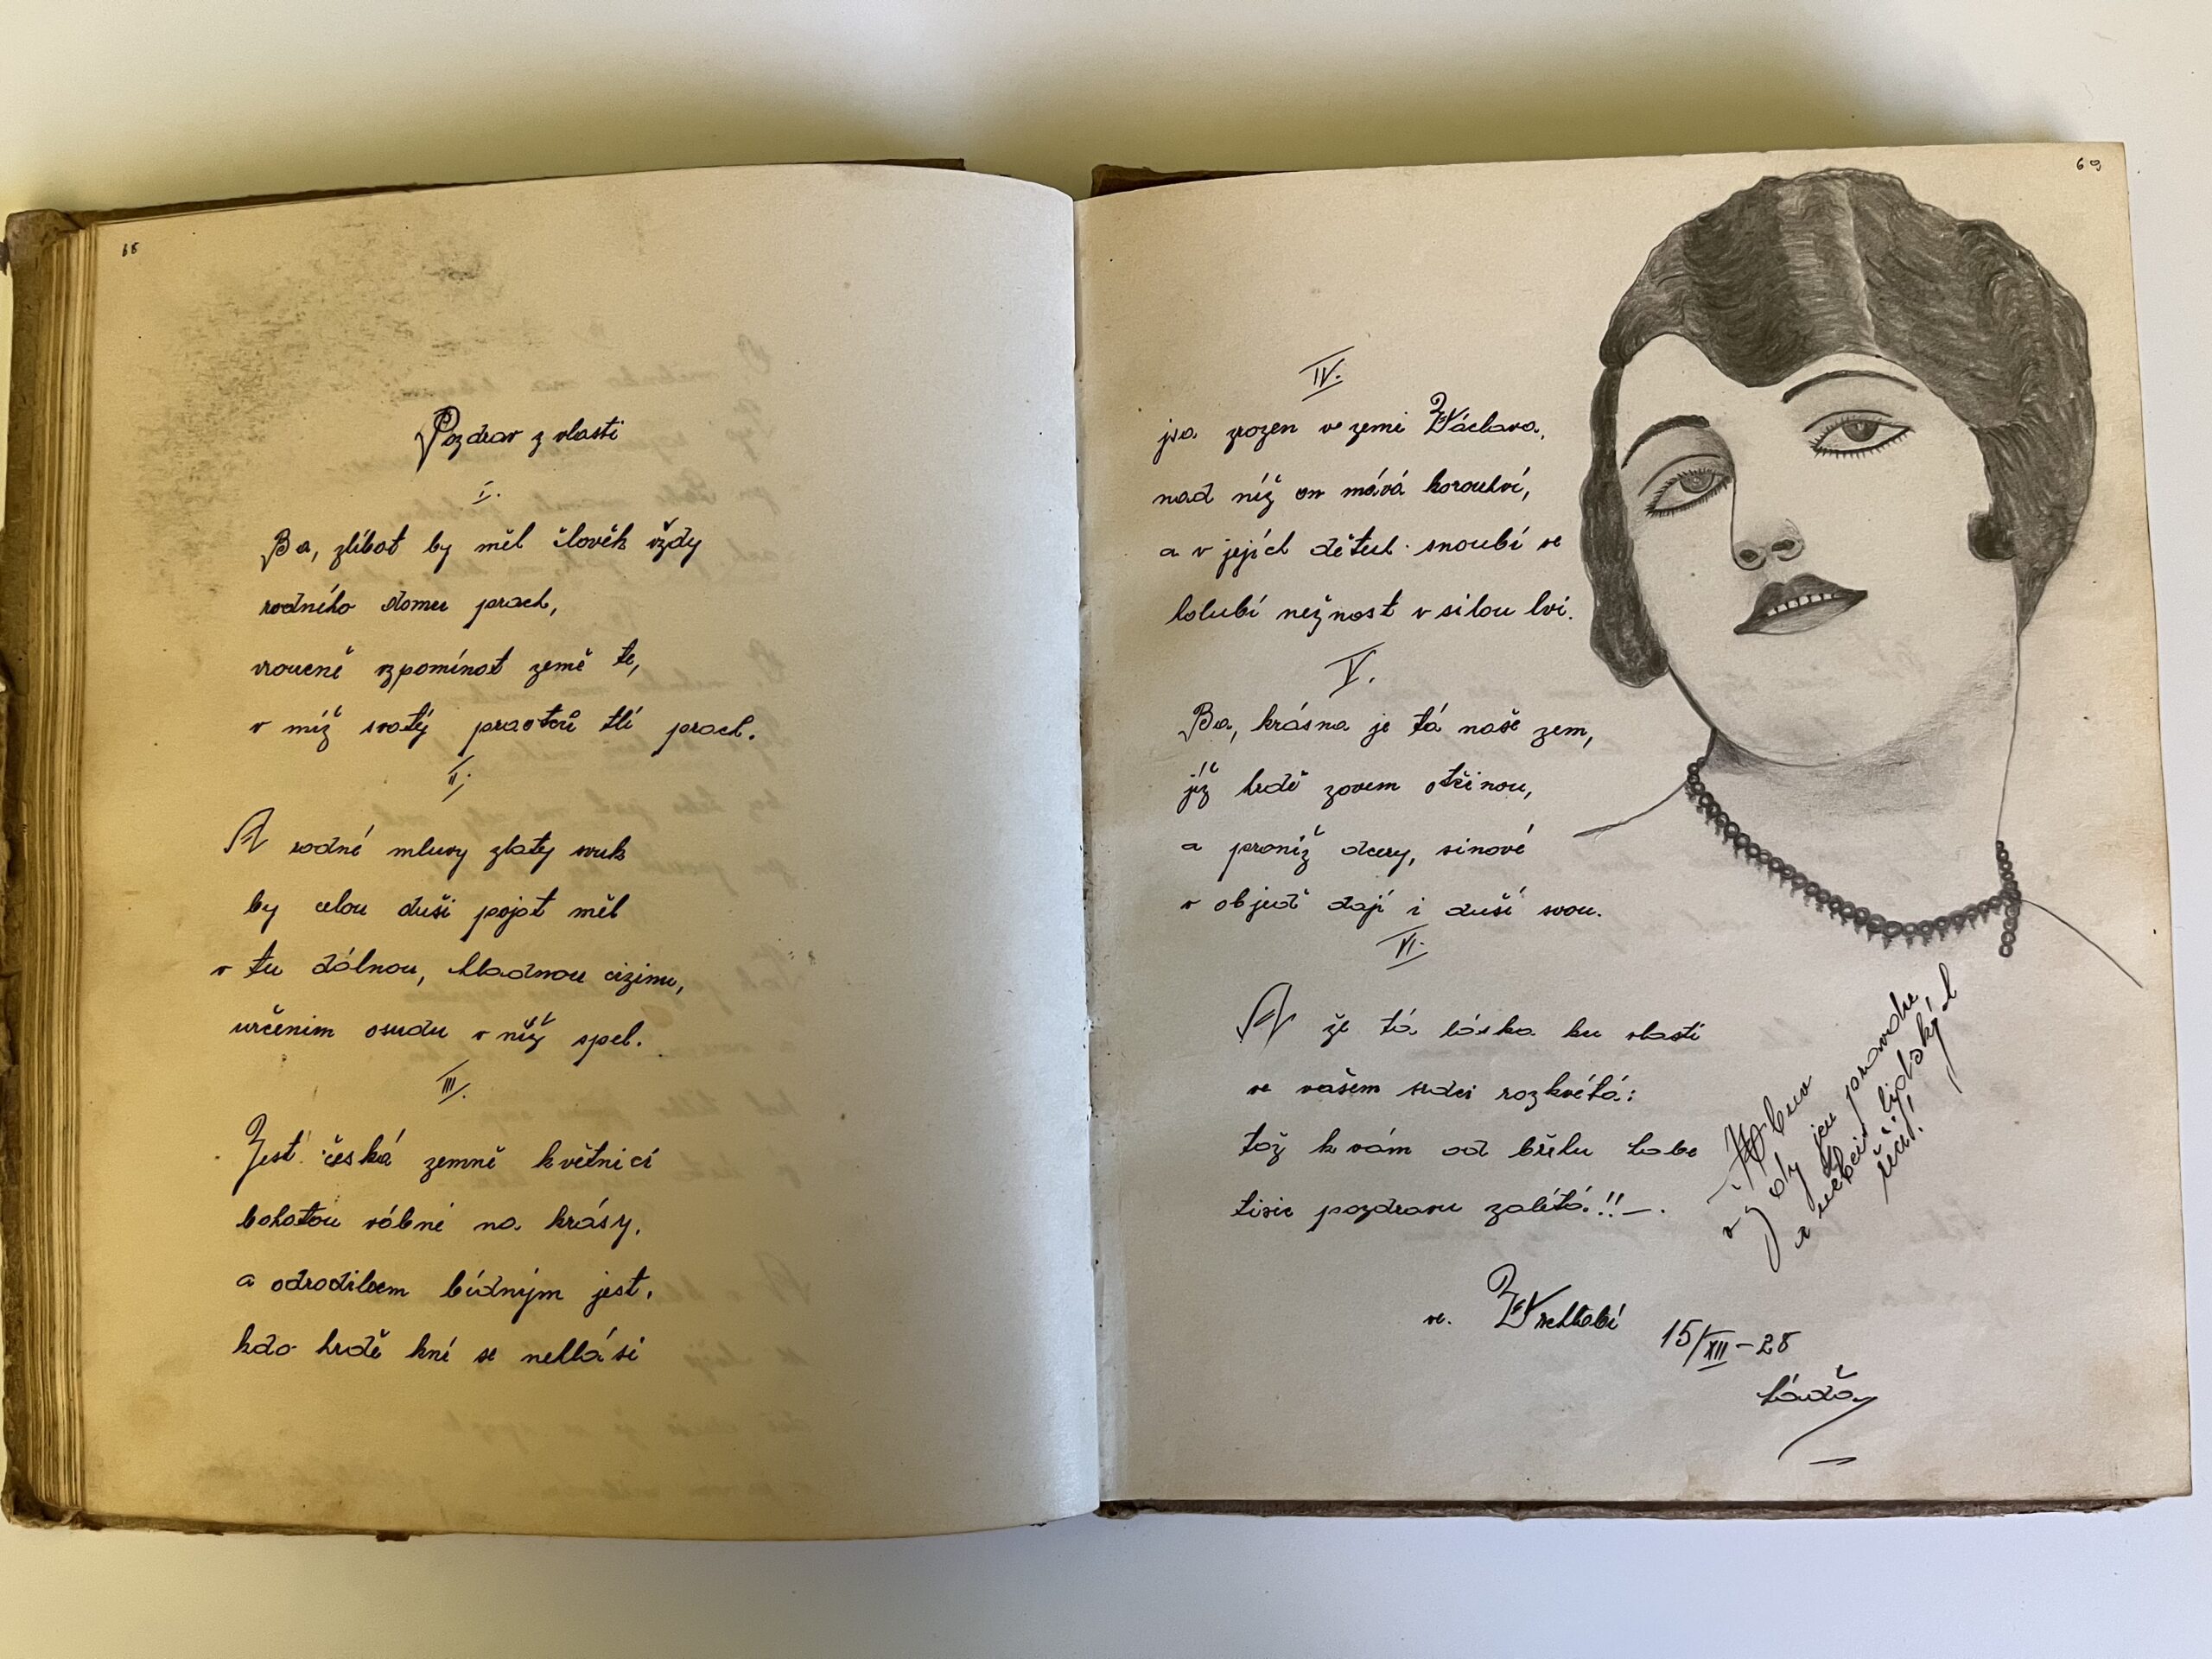 68
Pozdrav z vlasti
I.
Ba, zlíbat by měl člověk vždy
rodního domu prach,
vroucně vzpomínat země té,
v míž svatý praotců tlí prach.
II.
A rodné mluvy zlatý zvuk
by celou duši pojat měl
v tu dálnou, chladnou cizinu,
určením osudu v níž spěl.
III.
Jest česká země květnicí
bohatou vábné na krásy,
a odrodilcem bídným jest,
kdo hrdě kní se nehlásí
69
IV.
jsa zrozen ve zemi Václava,
nad níž on mává korouhví,
a v jejích dětech snoubí se
holubí něžnost v silou lví.
V.
Ba, krásna je tá naše zem,
jíž hrdě zovem otčinou,
a proníž dcery, sinové
v objeď dají i duší svou.
VI.
A že tá láska ku vlasti
ve vašem srdci rozkvétá:
tož k vám od břehu Labe
tisíc pozdravu zalétá!!—.
vždy jen pravdu
a nechci lidských
řečí!
ve. Vrchlabí 15/XII-28
Láďa